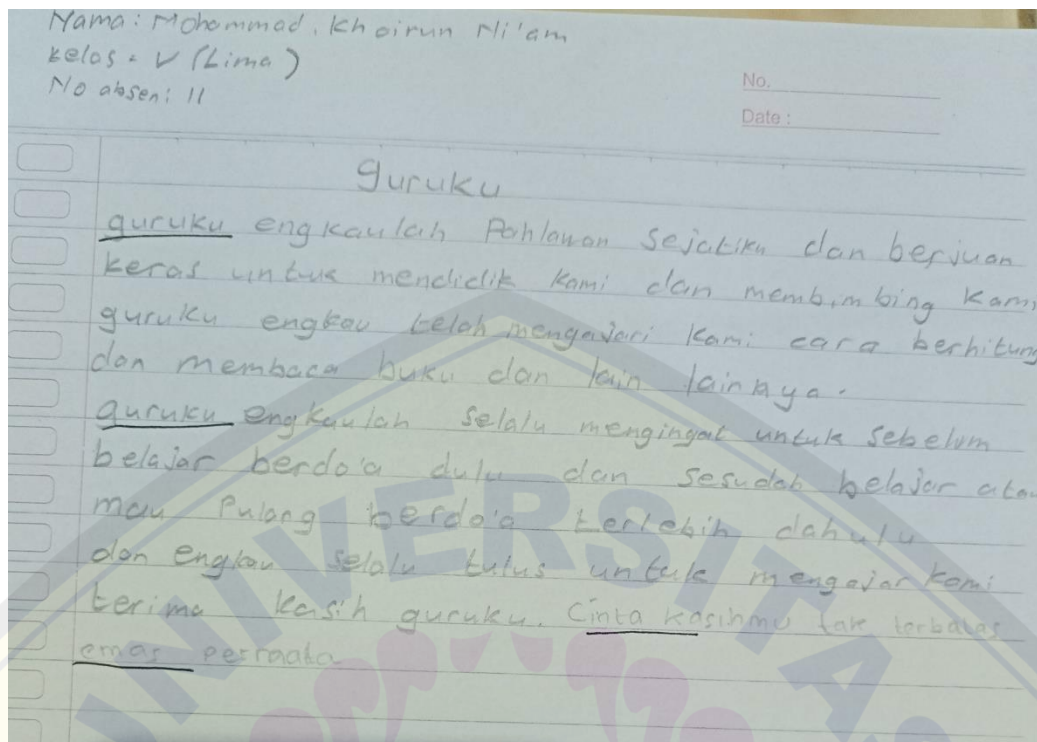 Nama: Mohammad. Khoirun Ni'am
kelas: V (Lima)
No absen: 11
No.
Date :
guruku
guruku engkaulah Pahlawan sejatiku dan berjuan
keras untuk mendidik kami dan membimbing kami
guruku engkau telah mengajari kami cara berhitung
dan membaca buku dan lain lainnya.
guruku engkaulah selalu mengingat untuk sebelum
belajar berdo'a dulu dan sesudah belajar atau
mau Pulang berdo'a terlebih dahulu
dan engkau selalu tulus untuk mengajar kami
terima kasih guruku. Cinta kasihmu tak terbatas
emas
UNIVERSITAS